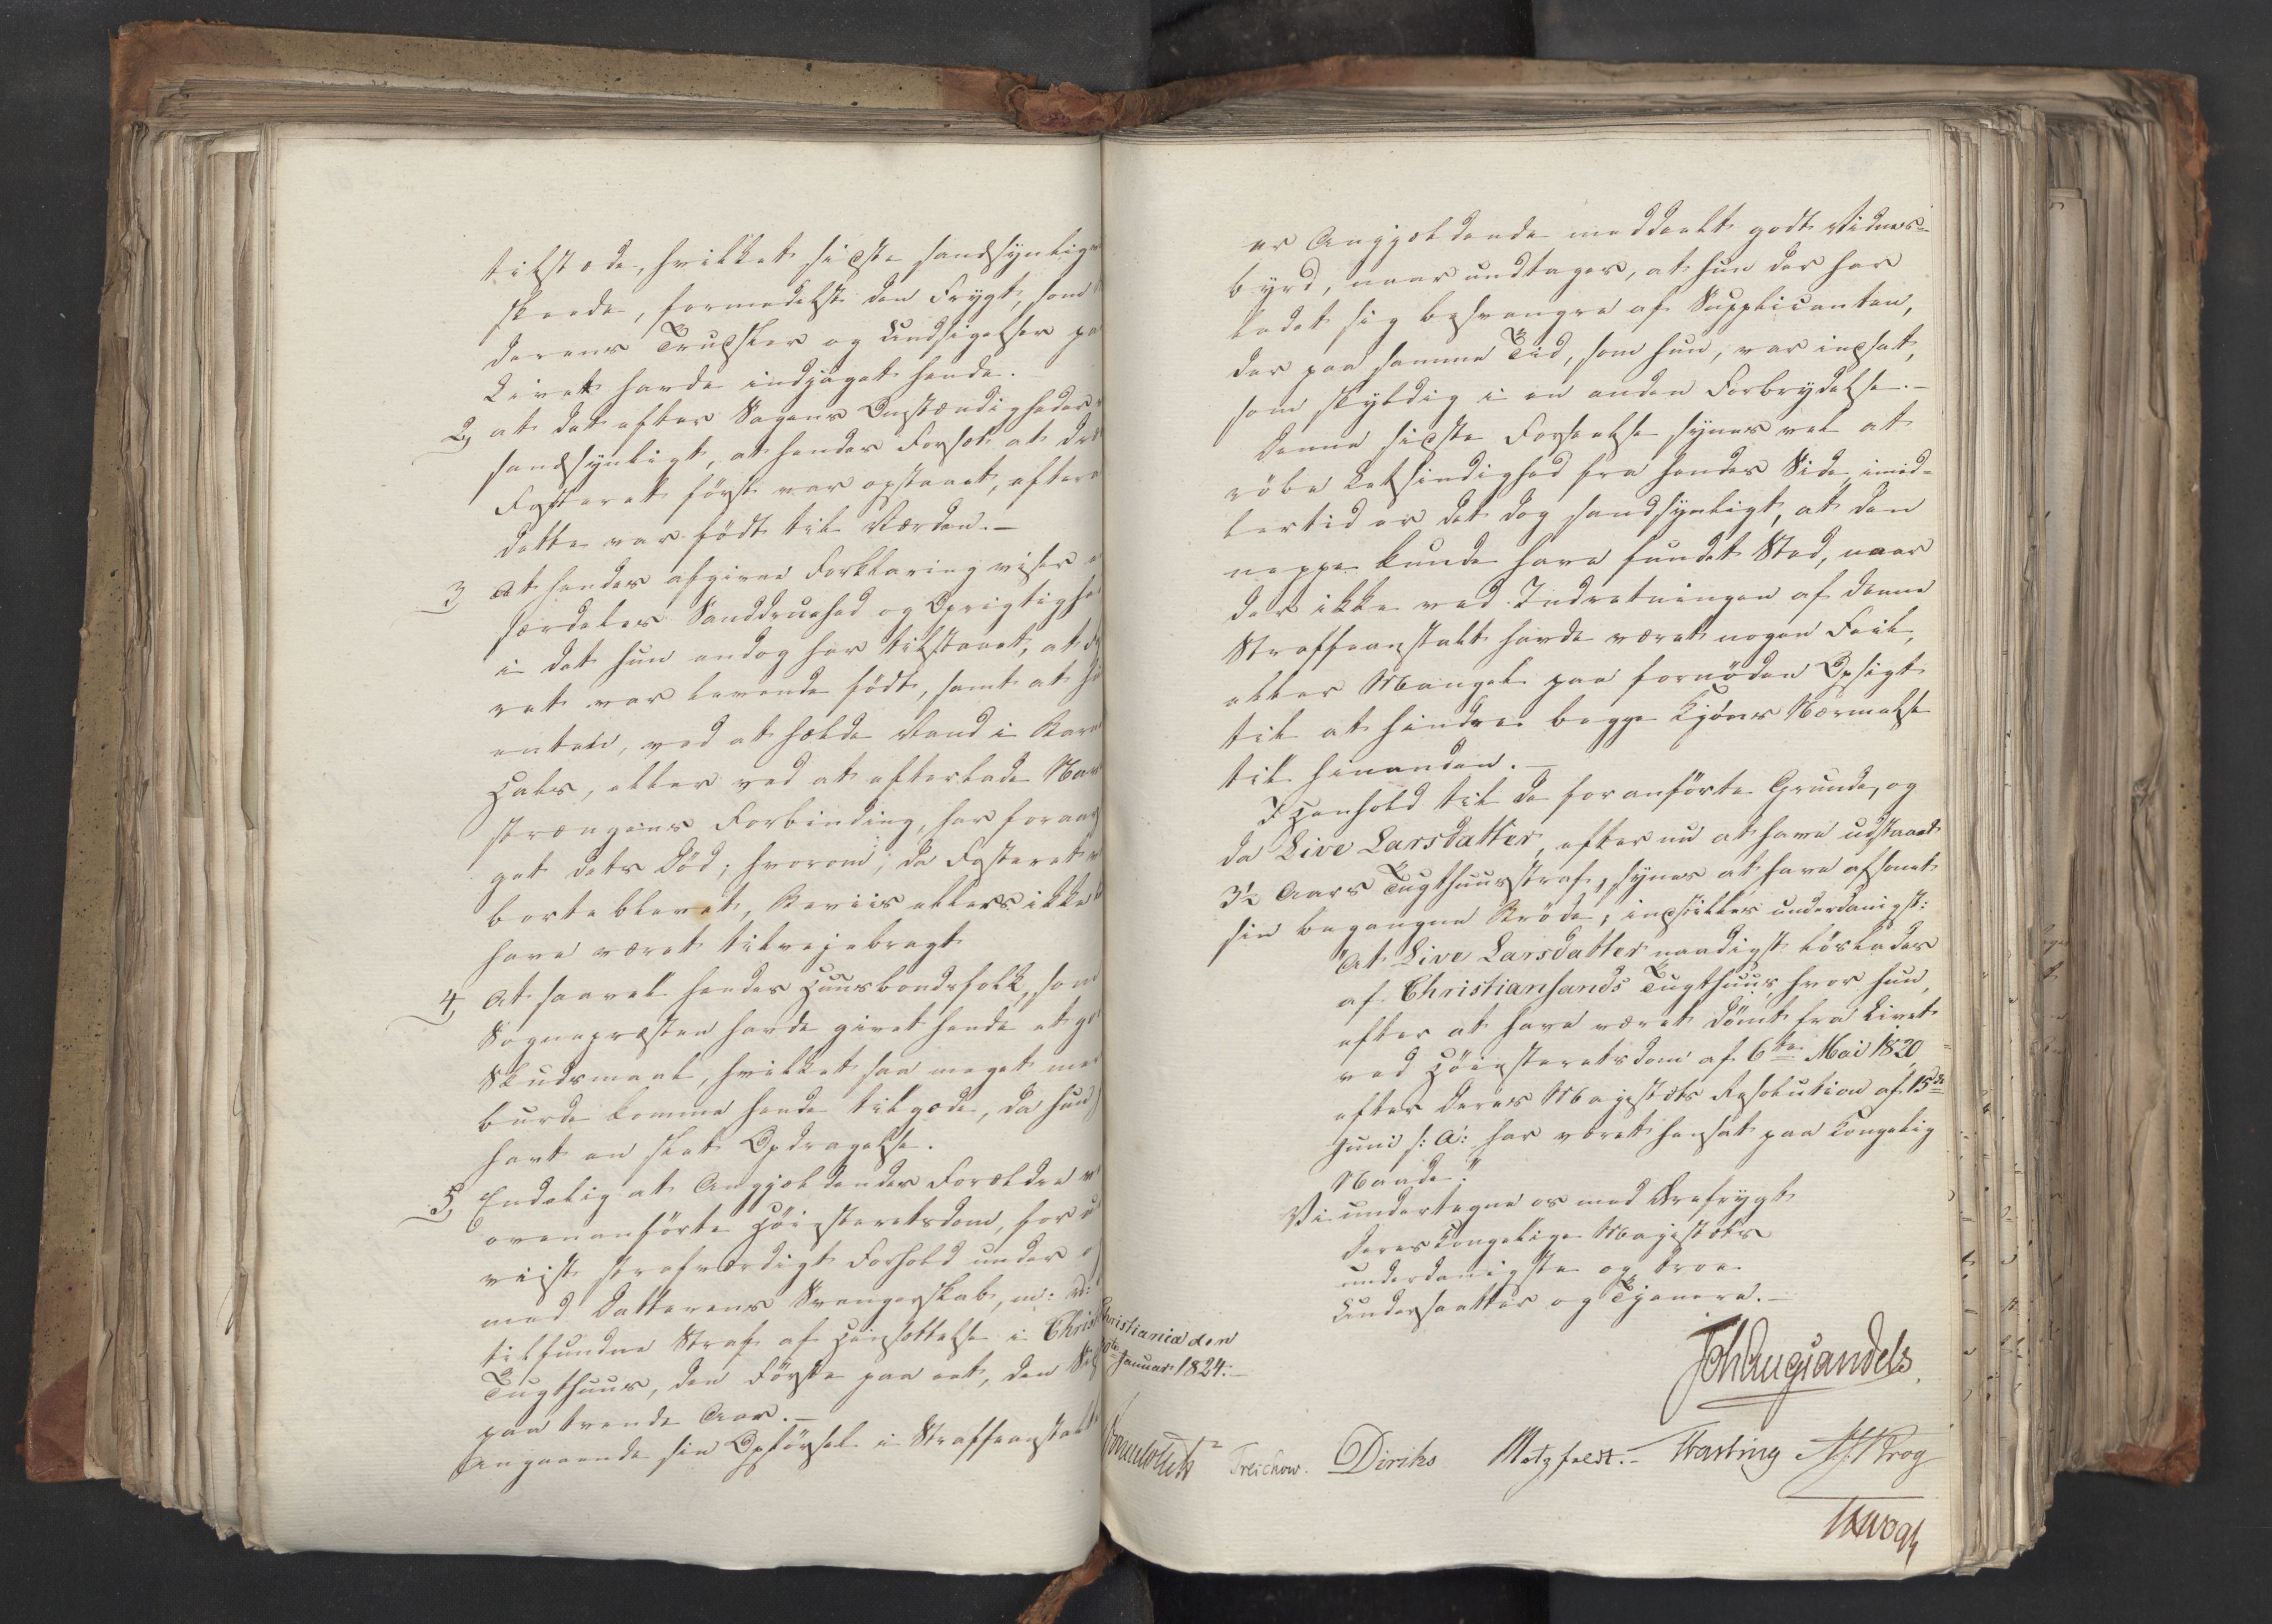 tilstæde, hvilket sidste sandsynligv
skeede, formedelst den Frygt, som
derens Trudsler og Undsigelser pa
Livet havde indjaget hende.
2, at det efter Sagens Omstændigheder
sandsynligt, at hendes Forsæt at dr
Fosteret först var opstaaet, eftera
dette var födt til Verden.-
3 At hendes afgivne Forklaring viser
særdeles Sanddruehed og Oprigtighe
i det hun endog har tilstaaet, at
ret var levende födt, samt at hu
enten, ved at hælde Vand i Barn
Hals, eller ved at efterlade Nav
strængens Forbinding, har foraar
get dets Död; hvorom, da Fosteret
borteblevet, Beviis ellers ikke
have været tilvejebragt
4, At saavel hendes Huusbondsfolk, som
Sognepræsten havde givet hende et go
Skudsmaal, hvilket saa meget me
burde komme hende tilgode, da hun
havt en slet Opdragelse.
5, Endelig at Angjældendes Forældre
ovenanförte Höiesteretsdom, for
viist strafværdigt Forhold under
med Datterens Svangerskab, m: v:
tilfundne Straf af Hensættelse i Chris
Tugthuus, den Förste paa eet, den Sid
paa trende Aar.-
Angaaende sin Opförsel i Straffeanstalt
er Angjældende meddeelt godt Vidnes-
byrd, naar undtages, at hun der har
ladet sig besvangre af Supplicanten,
der paa samme Tid, som hun, var indsat,
som skyldig i en anden Forbrydelse.-
Denne sidste Forseelse synes vel at
röbe Letsindighed fra hendes Side, imid-
lertid er det dog sandsynligt, at den
neppe kunde have fundet Sted, naar
der ikke ved Indretningen af denne
Straffeanstalt havde været nogen Feil,
eller Mangel paa fornöden Opsigt
til at hindre begge Kjöns Nærmelse
til hinanden.-
I Henhold til de foranförte Grunde, og
da Live Larsdatter, efter nu at have udstaaet
3½ Aars Tugthuusstraf, synes at have afsonet
sin begangne Bröde, indstilles underdanigst:
"At Live Larsdatter naadigst löslades
af Christiansands Tugthuus, hvor hun,
efter at have været dömt fra Livet
ved Höiesteretsdom af 6te Mai 1820,
efter Deres Majestæts Resolution af 15de
Juni s: A: har været hensat paa Kongelig
Naade."
Vi undertegne os med Ærefrygt
Deres Kongelige Majestæts
underdanigste og troe
Undersaatter og Tjenere.-
Christiania den
Januar 1824.-
Joh Aug Sandels
Sommerhielm Treschow. Diriks Motzfeldt.- Fasting J. Krog